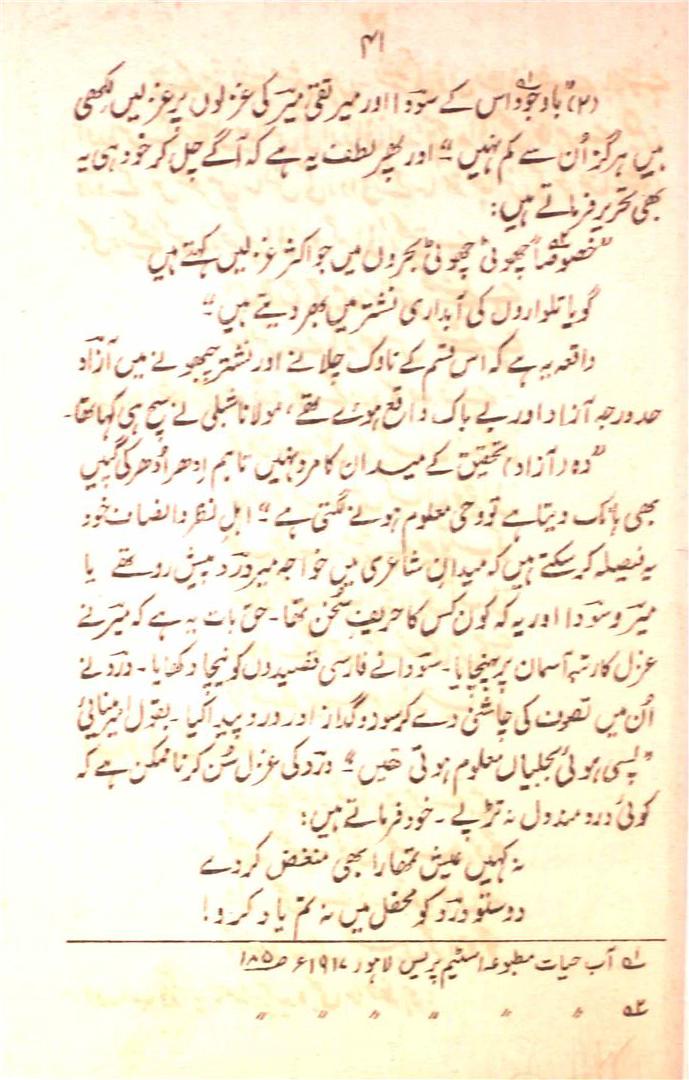 ۴۱
(۲) ”باوجود۱؎ اس کے سوؔدا اور میر تقی میرؔ کی غزلوں پر غزلیں لکھی
ہیں ہرگز اُن سے کم نہیں“ اور پھر لطف یہ ہے کہ آگے چل کر خود ہی یہ
بھی تحریر فرماتے ہیں:
”خصوصاً۲؎ چھوٹی چھوٹی بحروں میں جو اکثر غزلیں کہتے ہیں
گویا تلواروں کی آبداری نشتر میں بھر دیتے ہیں“
واقعہ یہ ہے کہ اس قسم کے ناوک چلانے اور نشتر چبھونے میں آزاؔد
حد درجہ آزاد اور بے باک واقع ہوئے تھے، مولانا شبلی نے سچ ہی کہا تھا۔
”وہ (آزاد) تحقیق کے میدان کا مرد نہیں تاہم اِدھر اُدھر کی گپیں
بھی ہانک دیتا ہے تو وحی معلوم ہونے لگتی ہے“ اہلِ نظر و انصاف خود
یہ فیصلہ کر سکتے ہیں کہ میدانِ شاعری میں خواجہ میر دردؔ پیش رو تھے یا
میرؔ و سوؔدا اور یہ کہ کون کس کا حریفِ سُخن تھا۔ حق بات یہ ہے کہ میرؔ نے
غزل کا رتبہ آسمان پر پہنچایا۔ سوؔدا نے فارسی قصیدوں کو نیچا دکھایا۔ دردؔ نے
اُن میں تصوف کی چاشنی دے کر سوز و گداز اور درد پیدا کیا۔ بقول امیر مینائی
”پسی ہوئی بجلیاں معلوم ہوتی ہیں“ دردؔ کی غزل سُن کر ناممکن ہے کہ
کوئی درد مند دل نہ تڑپے۔ خود فرماتے ہیں:
نہ کہیں عیش تمھارا بھی منغض کر دے
دوستو دردؔ کو محفل میں نہ تم یاد کرو!
۱؎ آب حیات مطبوعہ اسٹیم پریس لاہور ۱۹۱۷ء صـ۱۸۵
۲؎ ” ” ” ” ” ”